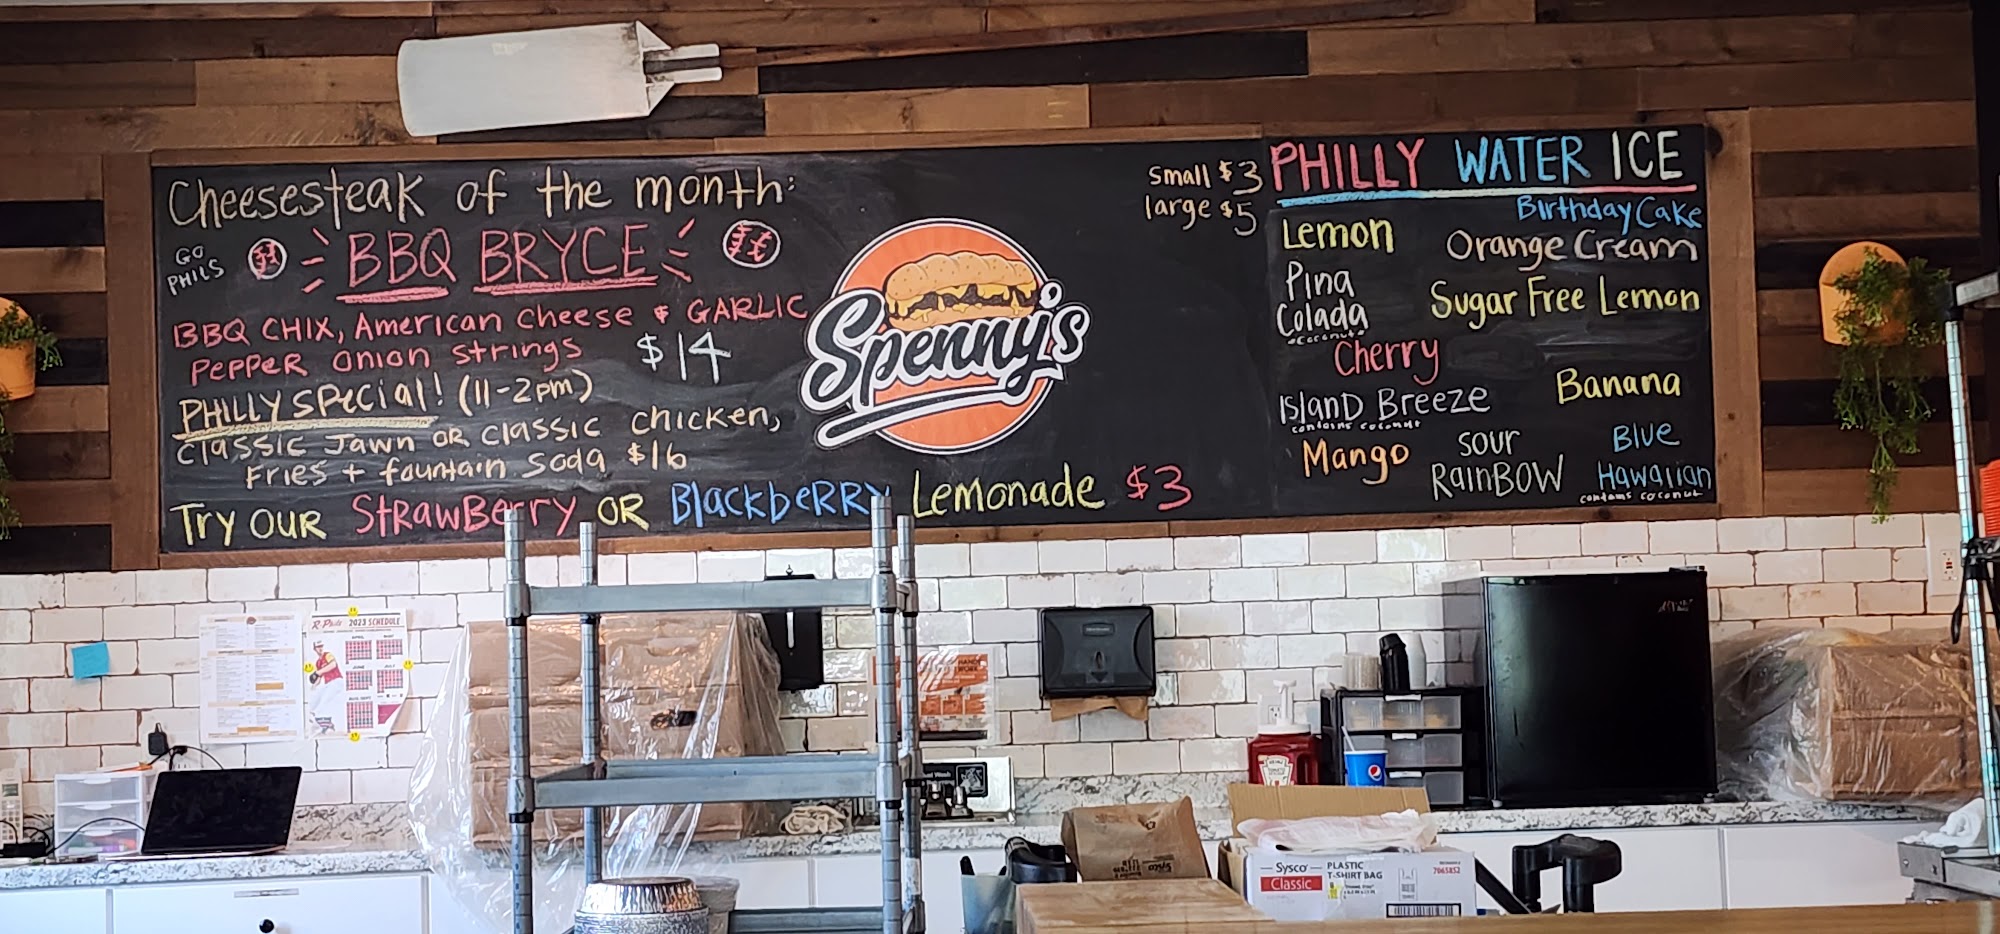 Cheesesteak of the month:
GO
PHILS
BBQ BRYCE
BBQ CHIX, American cheese & GARLIC
PEPPER onion strings $14
PHILLY SPECIAL! (11-2pm)
Classic Jawn OR classic chicken,
Fries + fountain soda $16
Try OUR StRawBerry OR BlackbeRRy Lemonade $3
Spenny's
small $3
large $5
PHILLY WATER ICE
Birthday Cake
Lemon
Orange Cream
Pina
Colada
Sugar Free Lemon
Cherry
Banana
IslanD Breeze
contains coconut
Mango
SOUR
RainBOW
Blue
Hawaiian
contains coconut
2023 SCHEDULE
HEINZ
Sysco
Classic
PLASTIC
T-SHIRT BAG
7065852